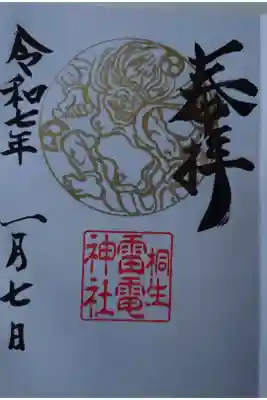 奉拝
桐生
雷電
神社
令和七年
一月七日